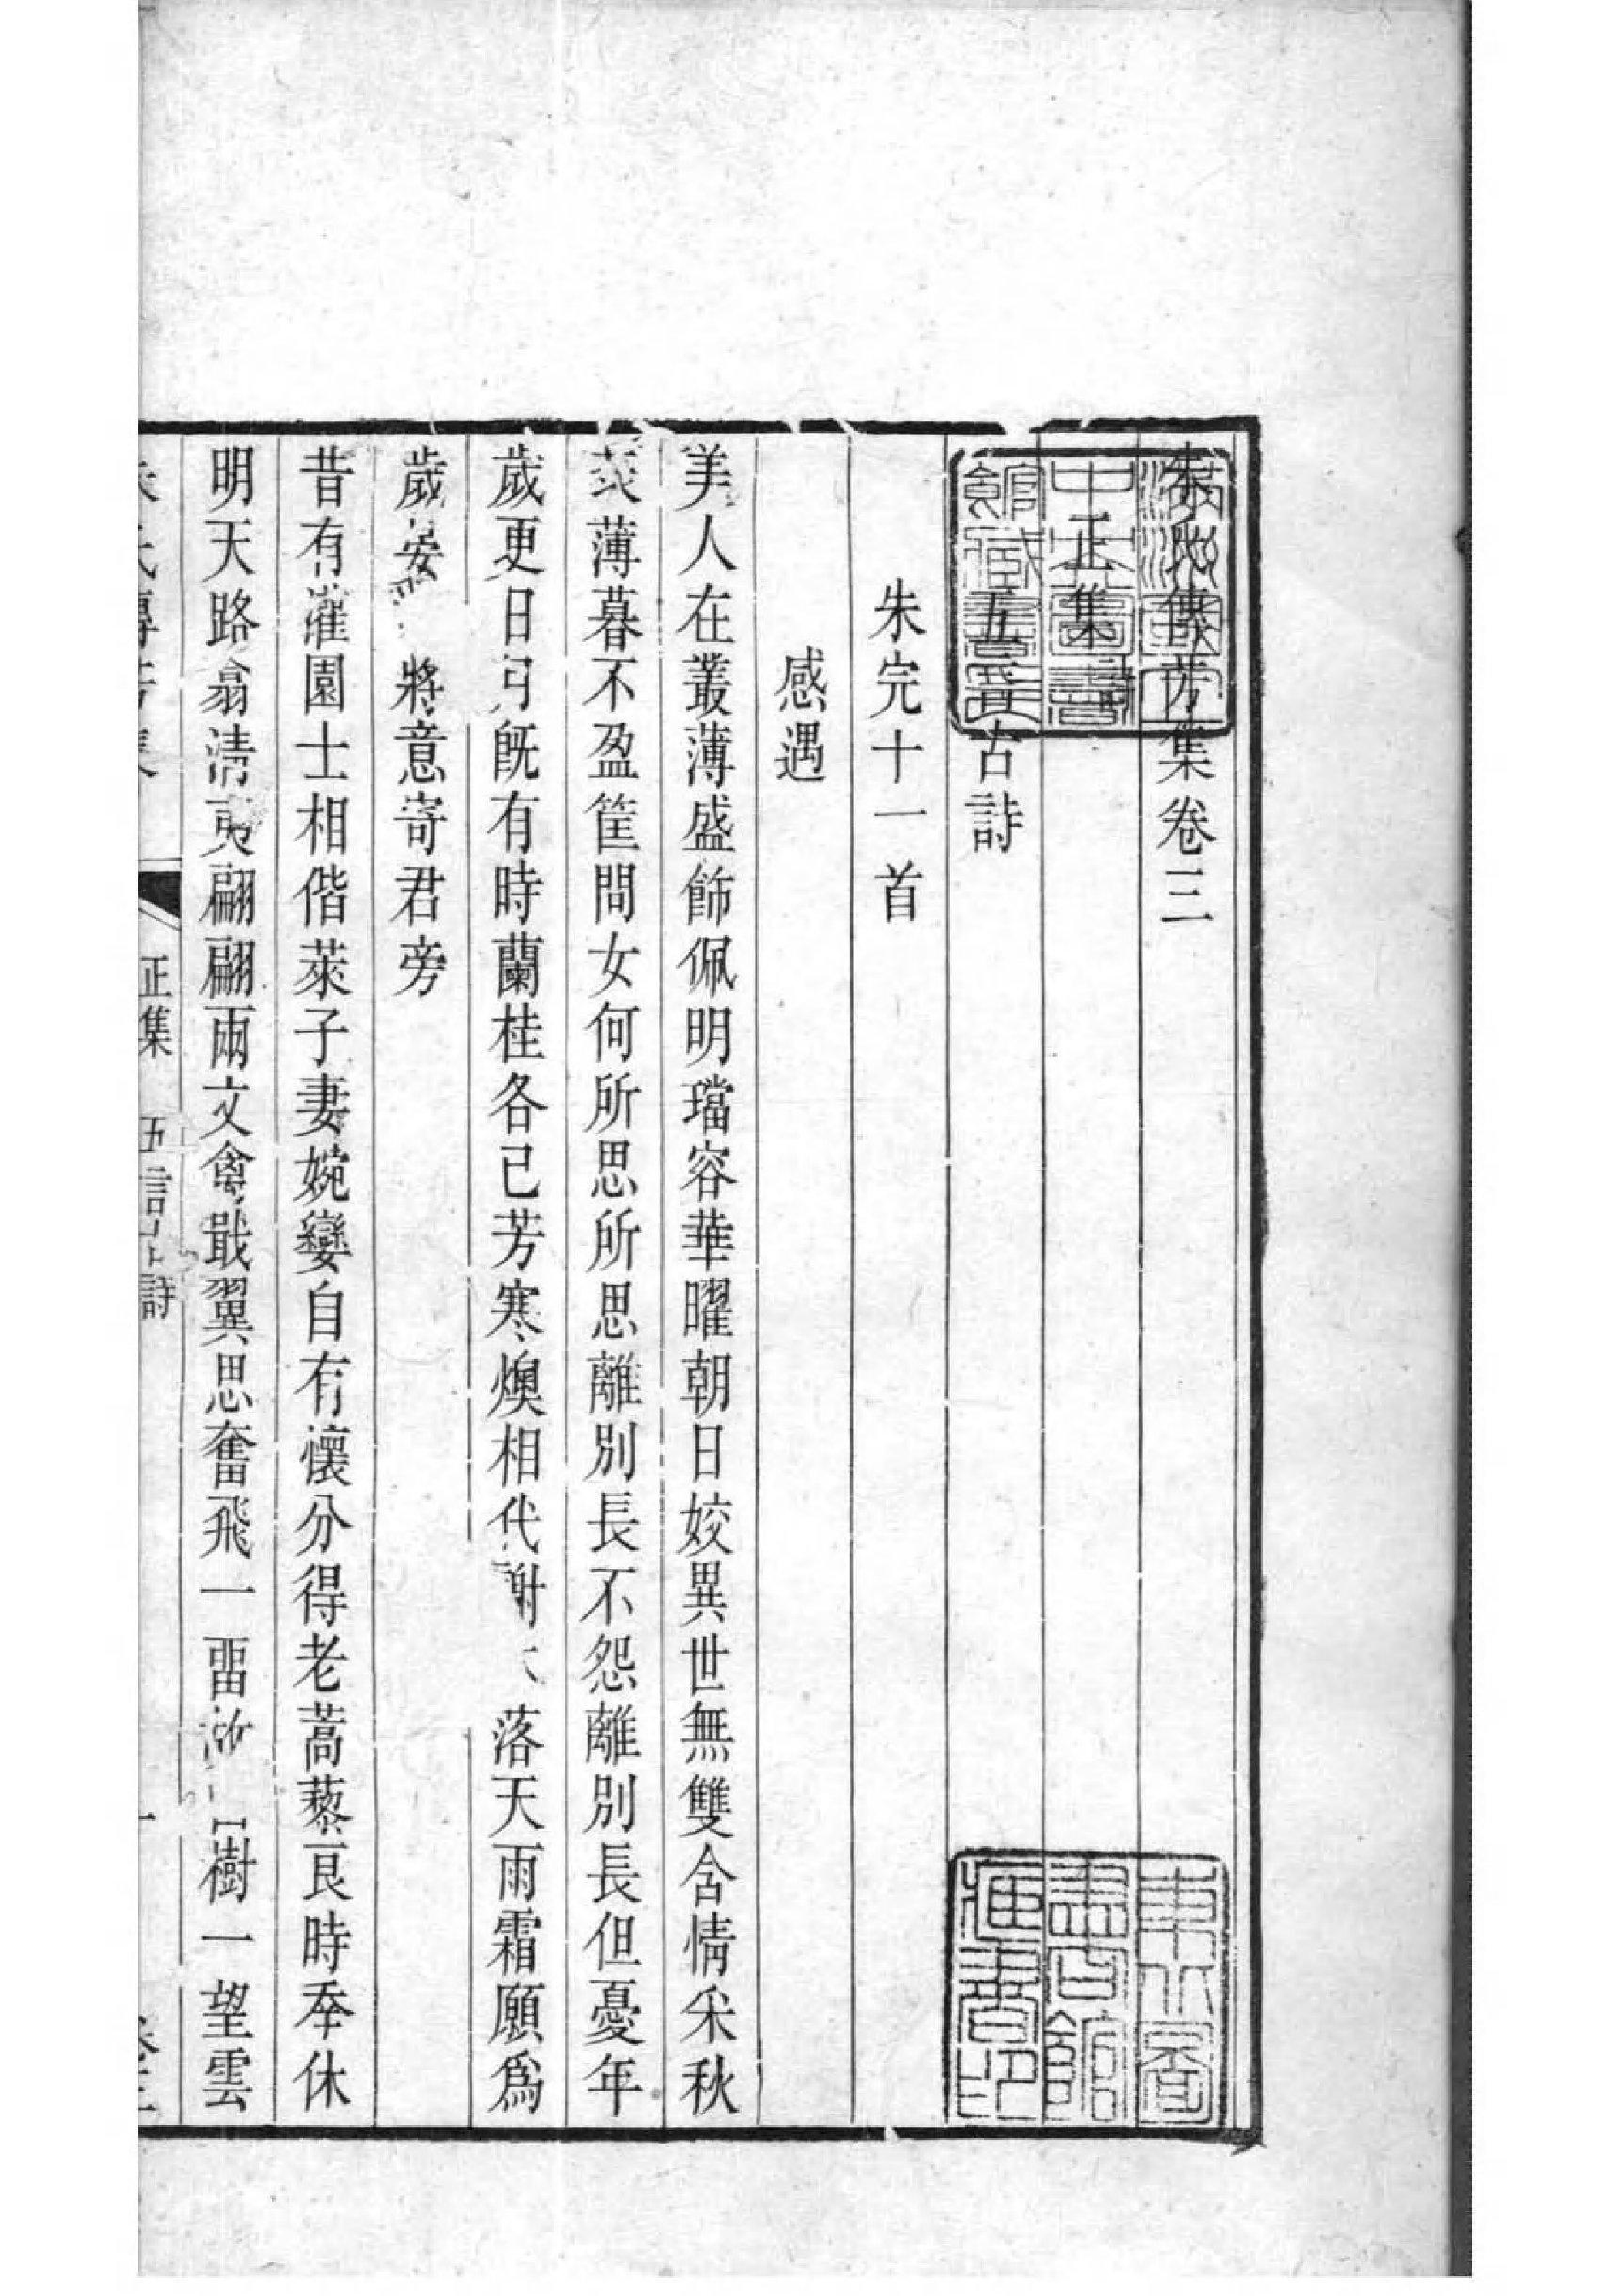 朱氏傳芳集卷三
正集
五言古詩
朱完十一首
感遇
美人在叢薄盛飾佩明璫容華曜朝日姣異世無雙含情采秋
英薄暮不盈筐問女何所思所思離別長不怨離別長但憂年
歲更日月旣有時蘭桂各已芳寒燠相代謝落天雨霜願爲
歲安將意寄君旁
昔有灌園士相偕萊子妻婉孌自有懷分得老蒿藜良時奉休
明天路翕清夷翩翩兩文禽戢翼思奮飛一畱樹一望雲
正集 五言古詩